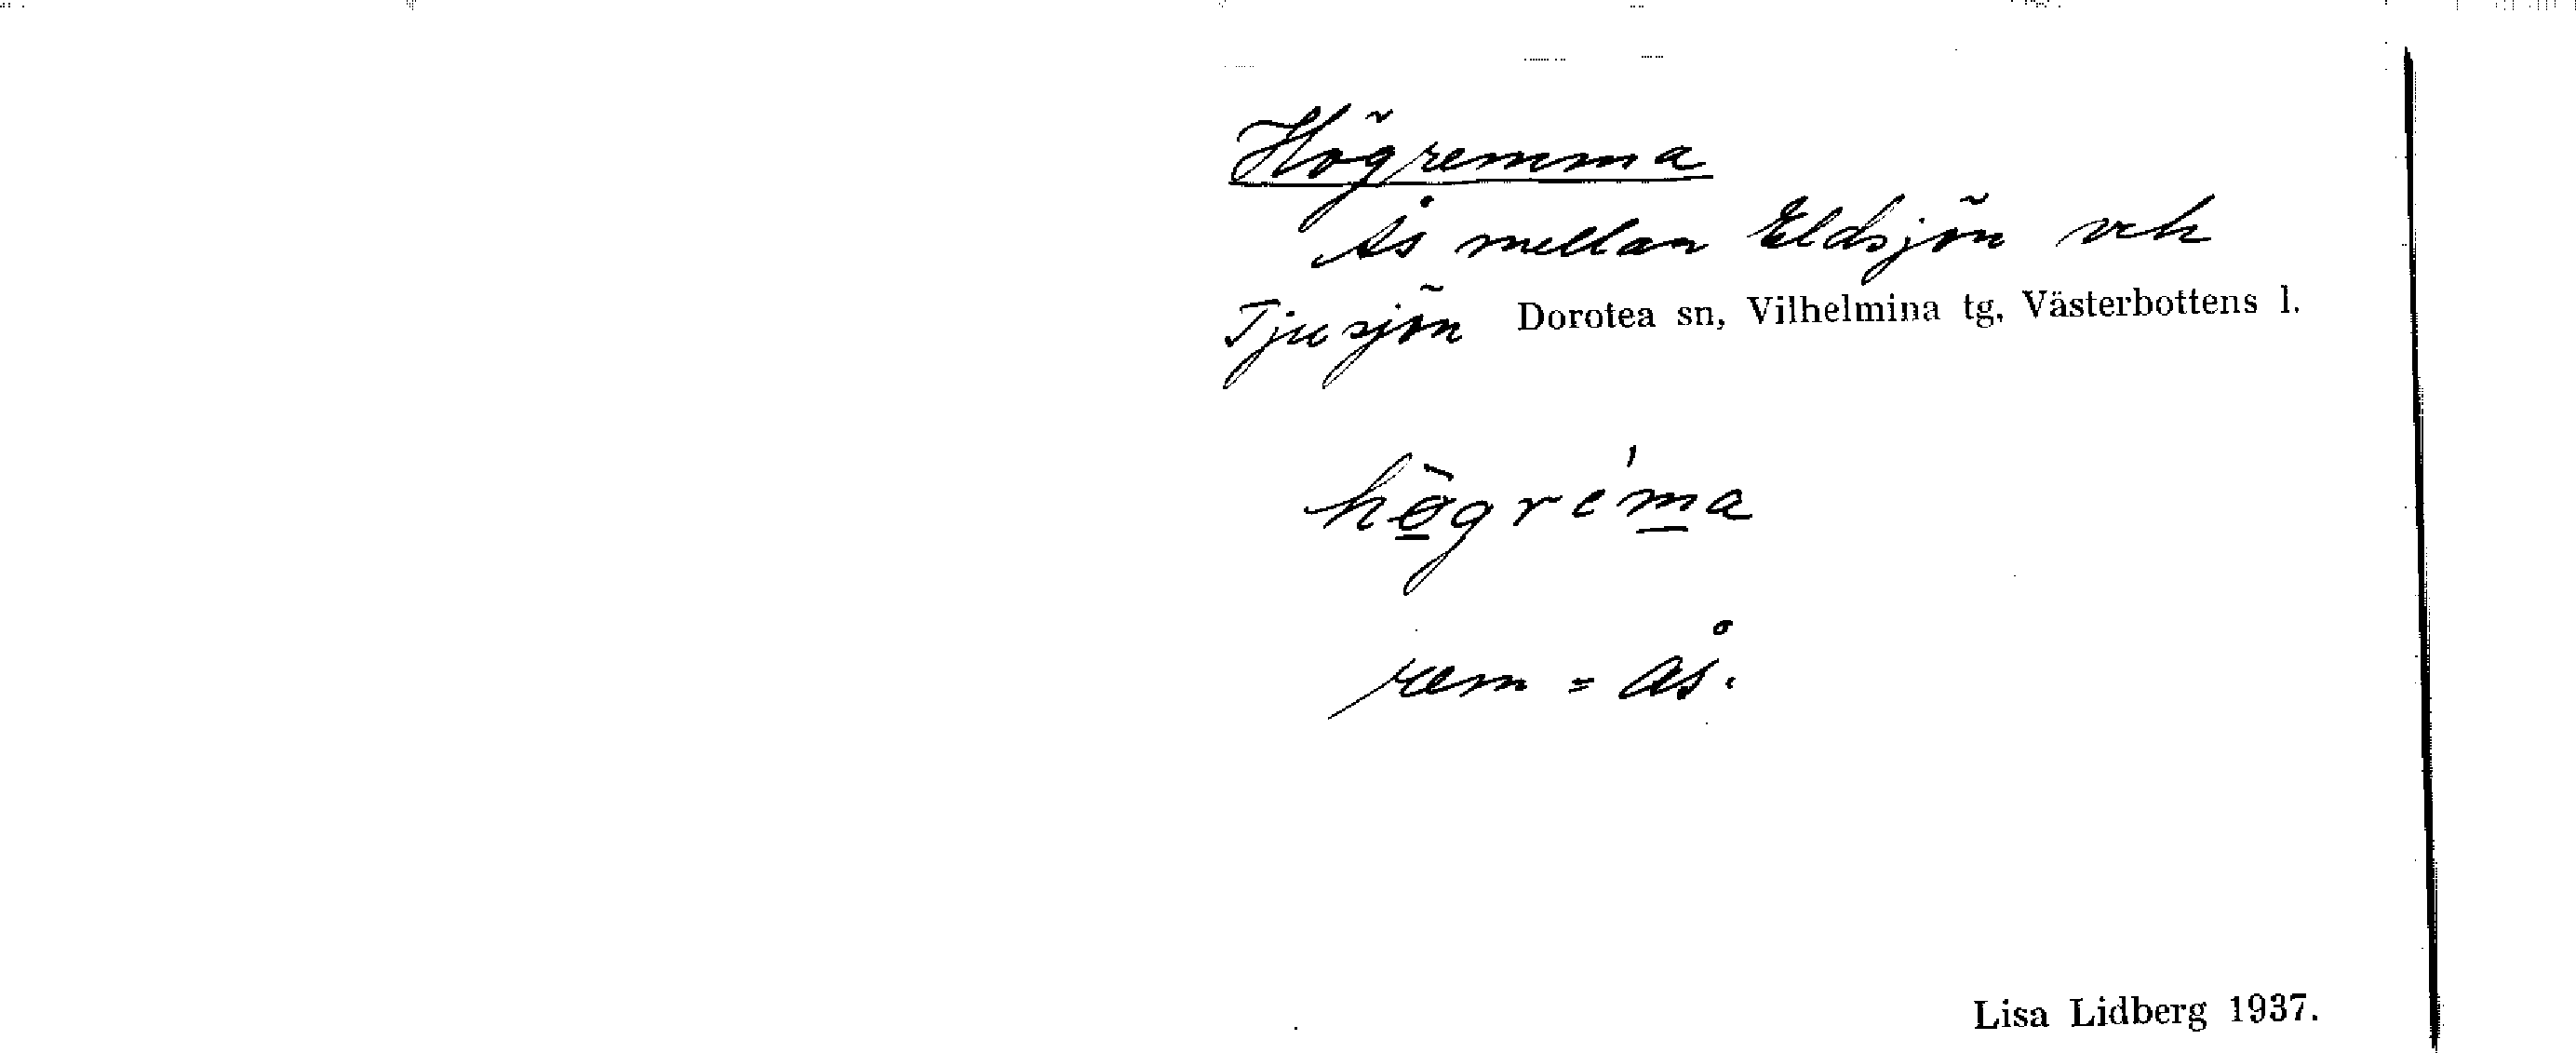 Högremma
Ås mellan Eldsjön och
Tjusjön Dorotea sn, Vilhelmina tg, Västerbottens l.
högréma
rem = ås.
Lisa Lidberg 1937.